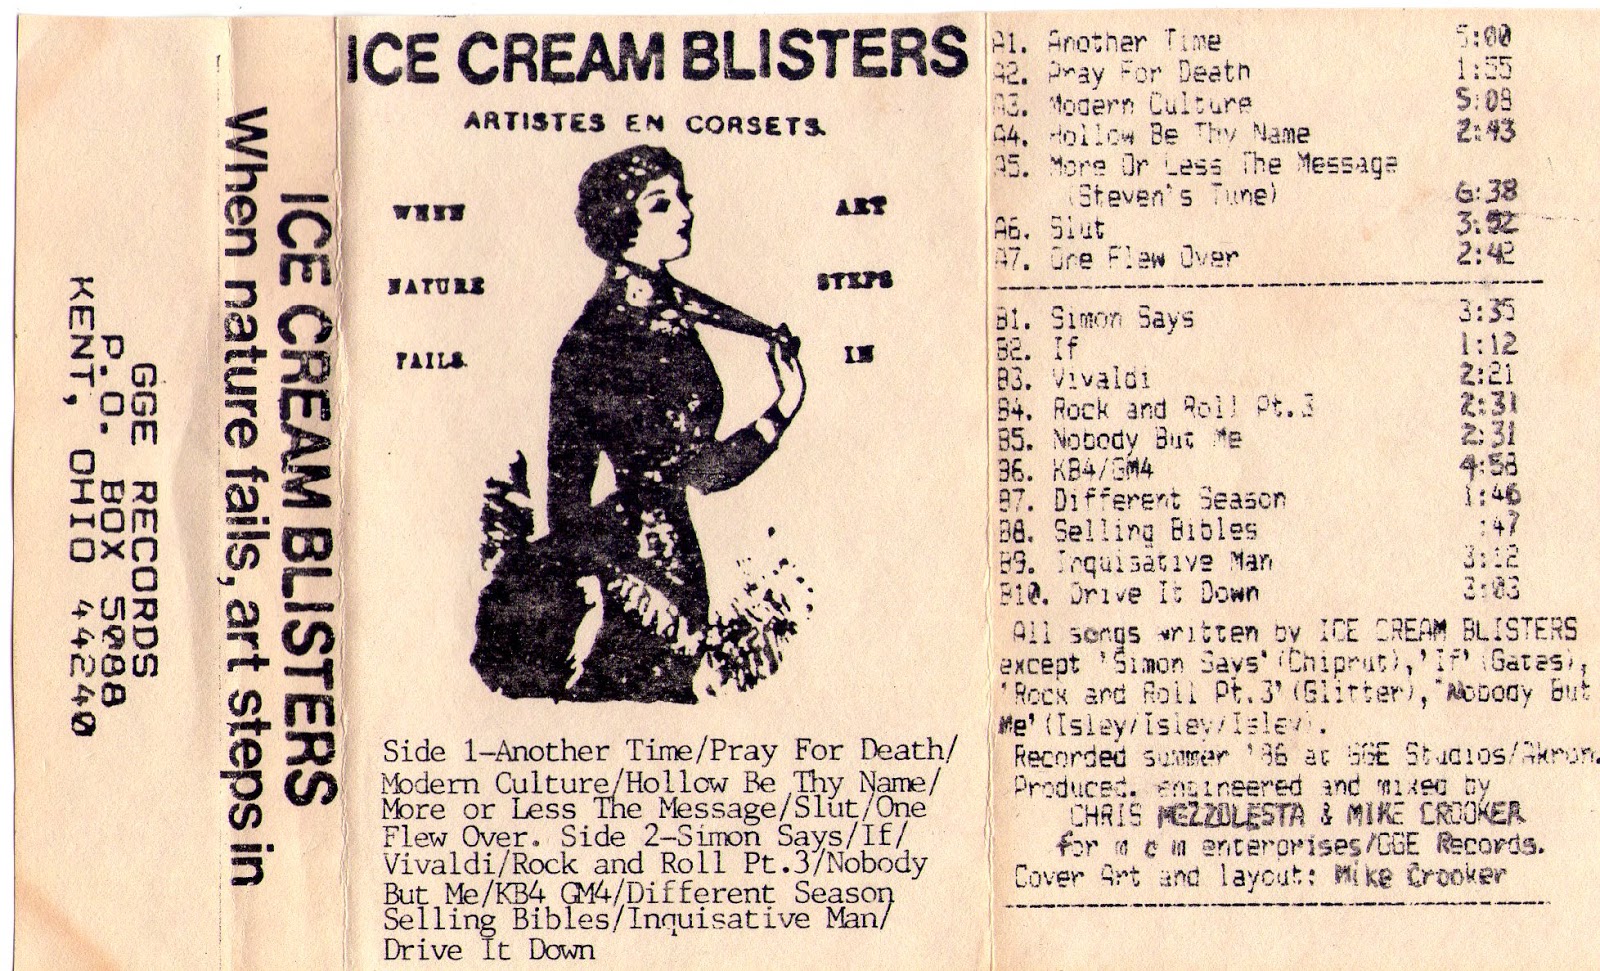 GGE RECORDS
P.O. BOX 5088
KENT, OHIO 44240
ICE CREAM BLISTERS
When nature fails, art steps in
ICE CREAM BLISTERS
ARTISTES EN CORSETS.
WHEN
NATURE
FAILS
ART
STEPS
IN
Side 1-Another Time/Pray For Death/
Modern Culture/Hollow Be Thy Name/
More or Less The Message/Slut/One
Flew Over. Side 2-Simon Says/If/
Vivaldi/Rock and Roll Pt.3/Nobody
But Me/KB4 GM4/Different Season
Selling Bibles/Inquisative Man/
Drive It Down
A1. Another Time 5:00
A2. Pray For Death 1:55
A3. Modern Culture 5:08
A4. Hollow Be Thy Name 2:43
A5. More Or Less The Message
(Steven's Tune) 6:38
A6. Slut
A7. One Flew Over 2:42
B1. Simon Says 3:35
B2. If 1:12
B3. Vivaldi 2:21
B4. Rock and Roll Pt.3 2:31
B5. Nobody But Me 2:31
B6. KB4/GM4 4:58
B7. Different Season 1:46
B8. Selling Bibles :47
B9. Inquisative Man 3:12
B10. Drive It Down 3:03
All songs written by ICE CREAM BLISTERS
except 'Simon Says'(Chiprut),'If'(Gates),
'Rock and Roll Pt.3'(Glitter),'Nobody But
Me'(Isley/Isley/Isley).
Recorded summer '86 at GGE Studios/Akron.
Produced, engineered and mixed by
CHRIS MEZZOLESTA & MIKE CROOKER
for m c m enterprises/GGE Records.
Cover Art and layout: Mike Crooker